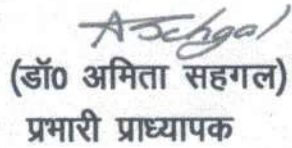 ASehgal
(डॉ0 अमिता सहगल)
प्रभारी प्राध्यापक